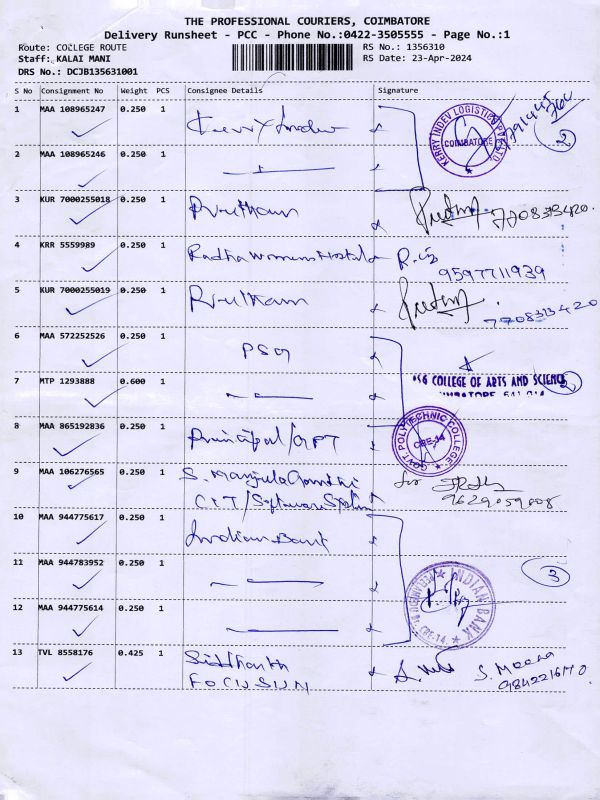 THE PROFESSIONAL COURIERS, COIMBATORE
Delivery Runsheet - PCC - Phone No.:0422-3505555 - Page No.:1
Route: COLLEGE ROUTE
Staff: KALAI MANI
DRS No.: DCJB135631001
RS No.: 1356310
RS Date: 23-Apr-2024
S No Consignment No Weight PCS Consignee Details Signature
1 MAA 108965247 0.250 1
KERRY INDEV LOGISTICS PVT LTD
COIMBATORE
2
2 MAA 108965246 0.250 1
3 KUR 7000255018 0.250 1 7708313420
4 KRR 5559989 0.250 1 Radha Womens Hostel 9597711939
5 KUR 7000255019 0.250 1 7708313420
6 MAA 572252526 0.250 1 PSG
7 MTP 1293888 0.600 1
PSG COLLEGE OF ARTS AND SCIENCE
2
8 MAA 865192836 0.250 1 Principal/GPT
GOVT POLYTECHNIC COLLEGE
CBE-14
9 MAA 106276565 0.250 1 S. Manjula Gandhi
CIT/Software System
for
9629059008
10 MAA 944775617 0.250 1 Indian Bank
11 MAA 944783952 0.250 1
3
INDIAN BANK
CBE-14.
12 MAA 944775614 0.250 1
13 TVL 8558176 0.425 1 Siddharth
FOCUSUN
S. Meena